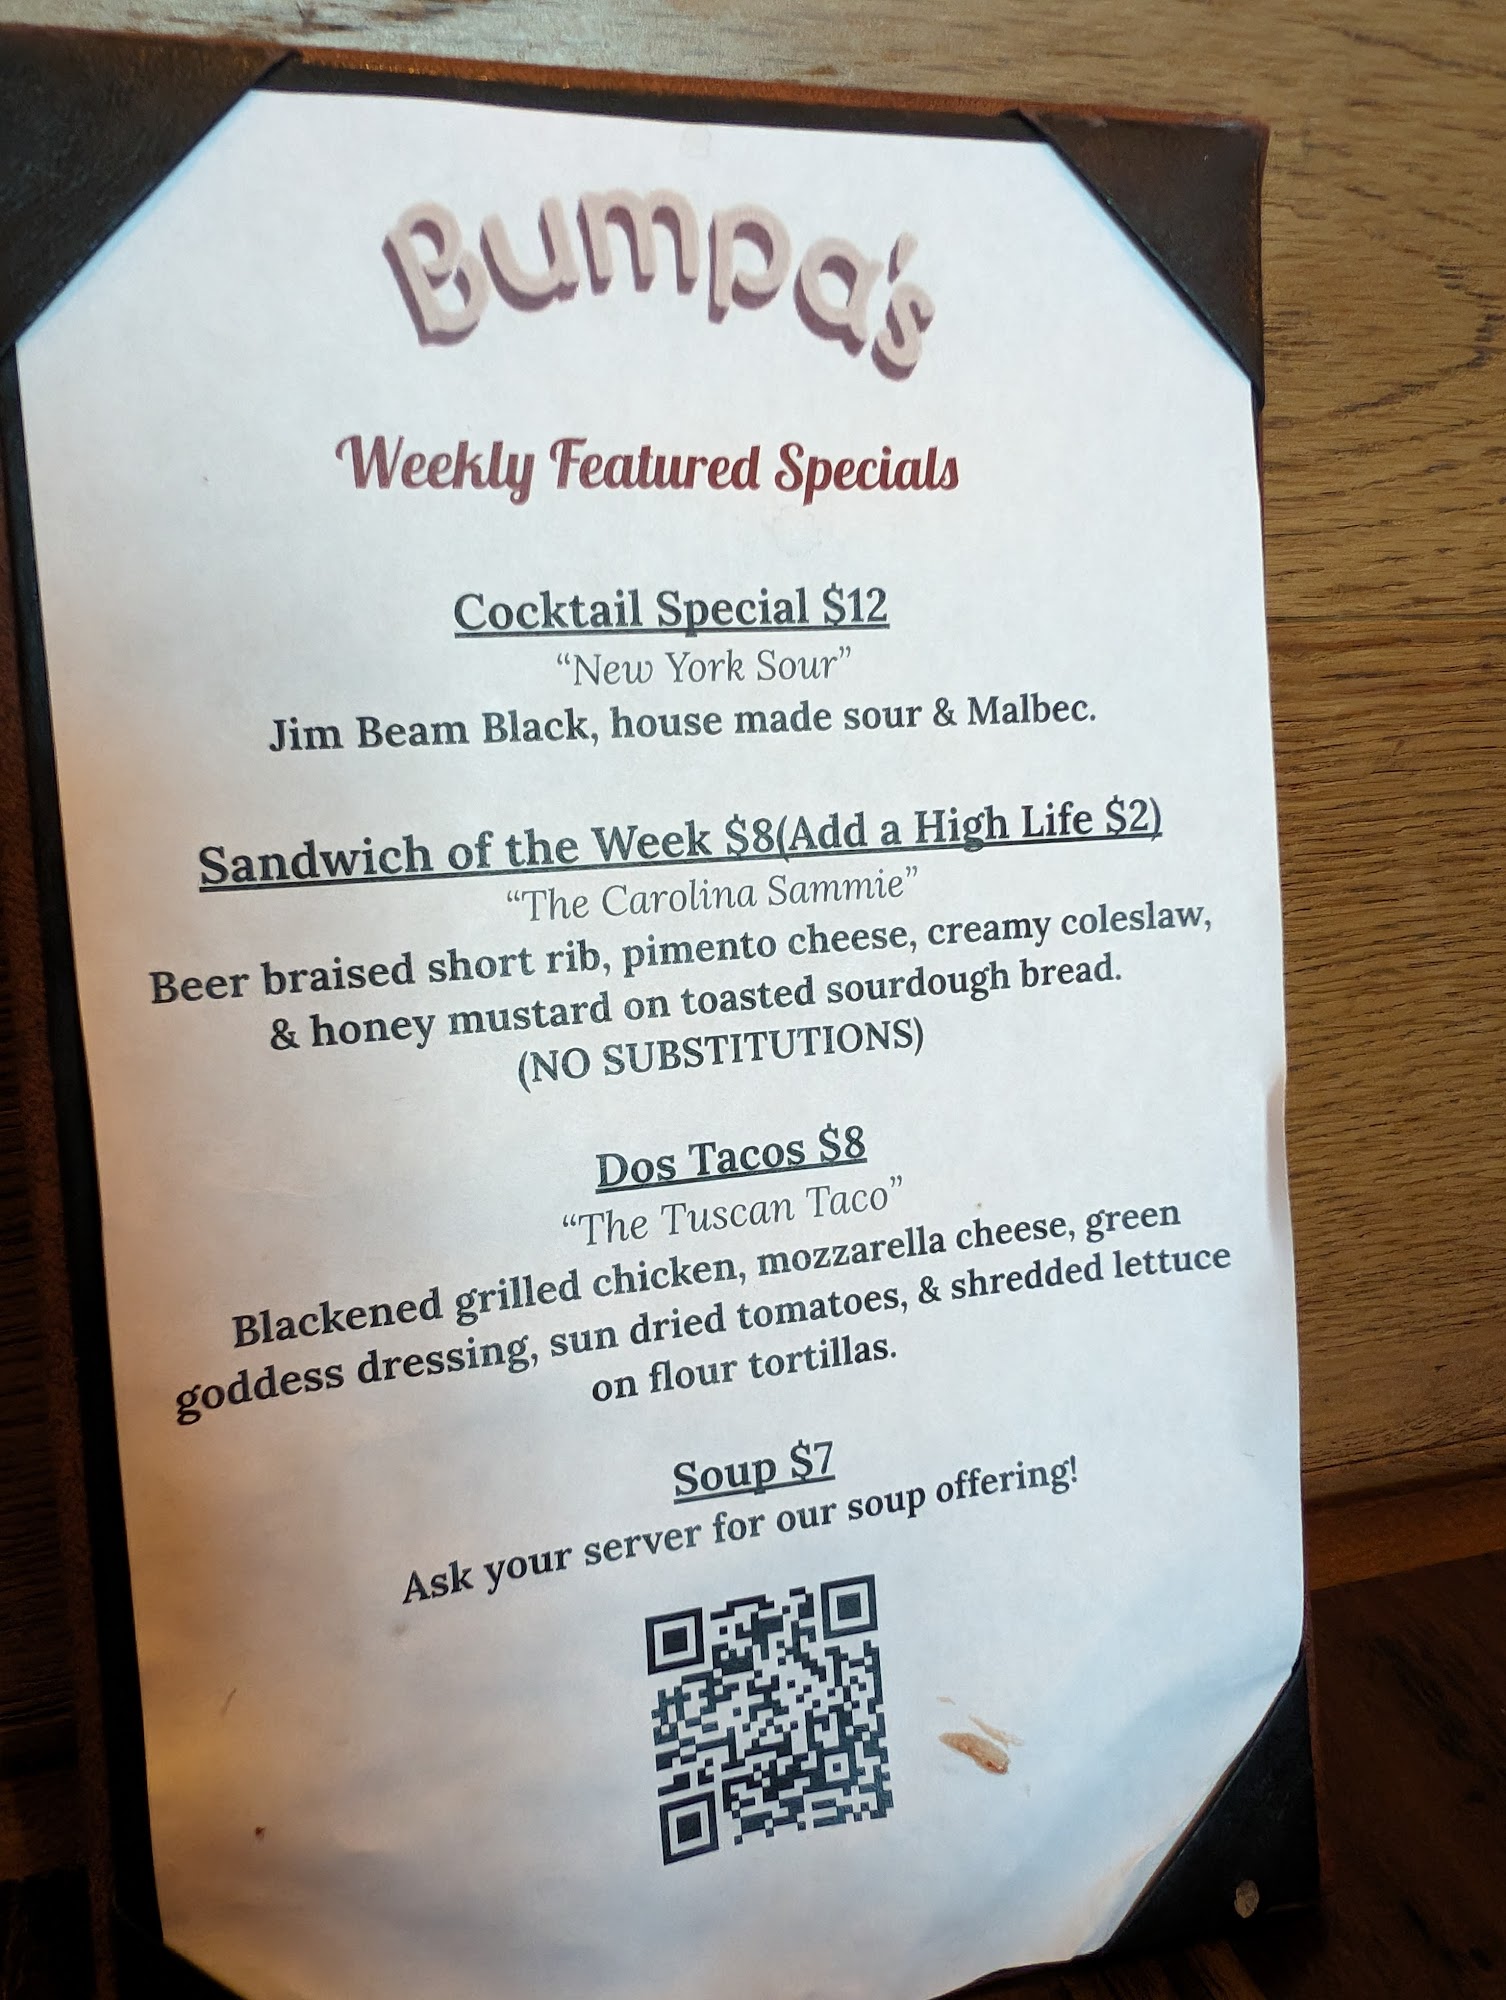 Bumpa's
Weekly Featured Specials
Cocktail Special $12
“New York Sour”
Jim Beam Black, house made sour & Malbec.
Sandwich of the Week $8(Add a High Life $2)
“The Carolina Sammie”
Beer braised short rib, pimento cheese, creamy coleslaw,
& honey mustard on toasted sourdough bread.
(NO SUBSTITUTIONS)
Dos Tacos $8
“The Tuscan Taco”
Blackened grilled chicken, mozzarella cheese, green
goddess dressing, sun dried tomatoes, & shredded lettuce
on flour tortillas.
Soup $7
Ask your server for our soup offering!